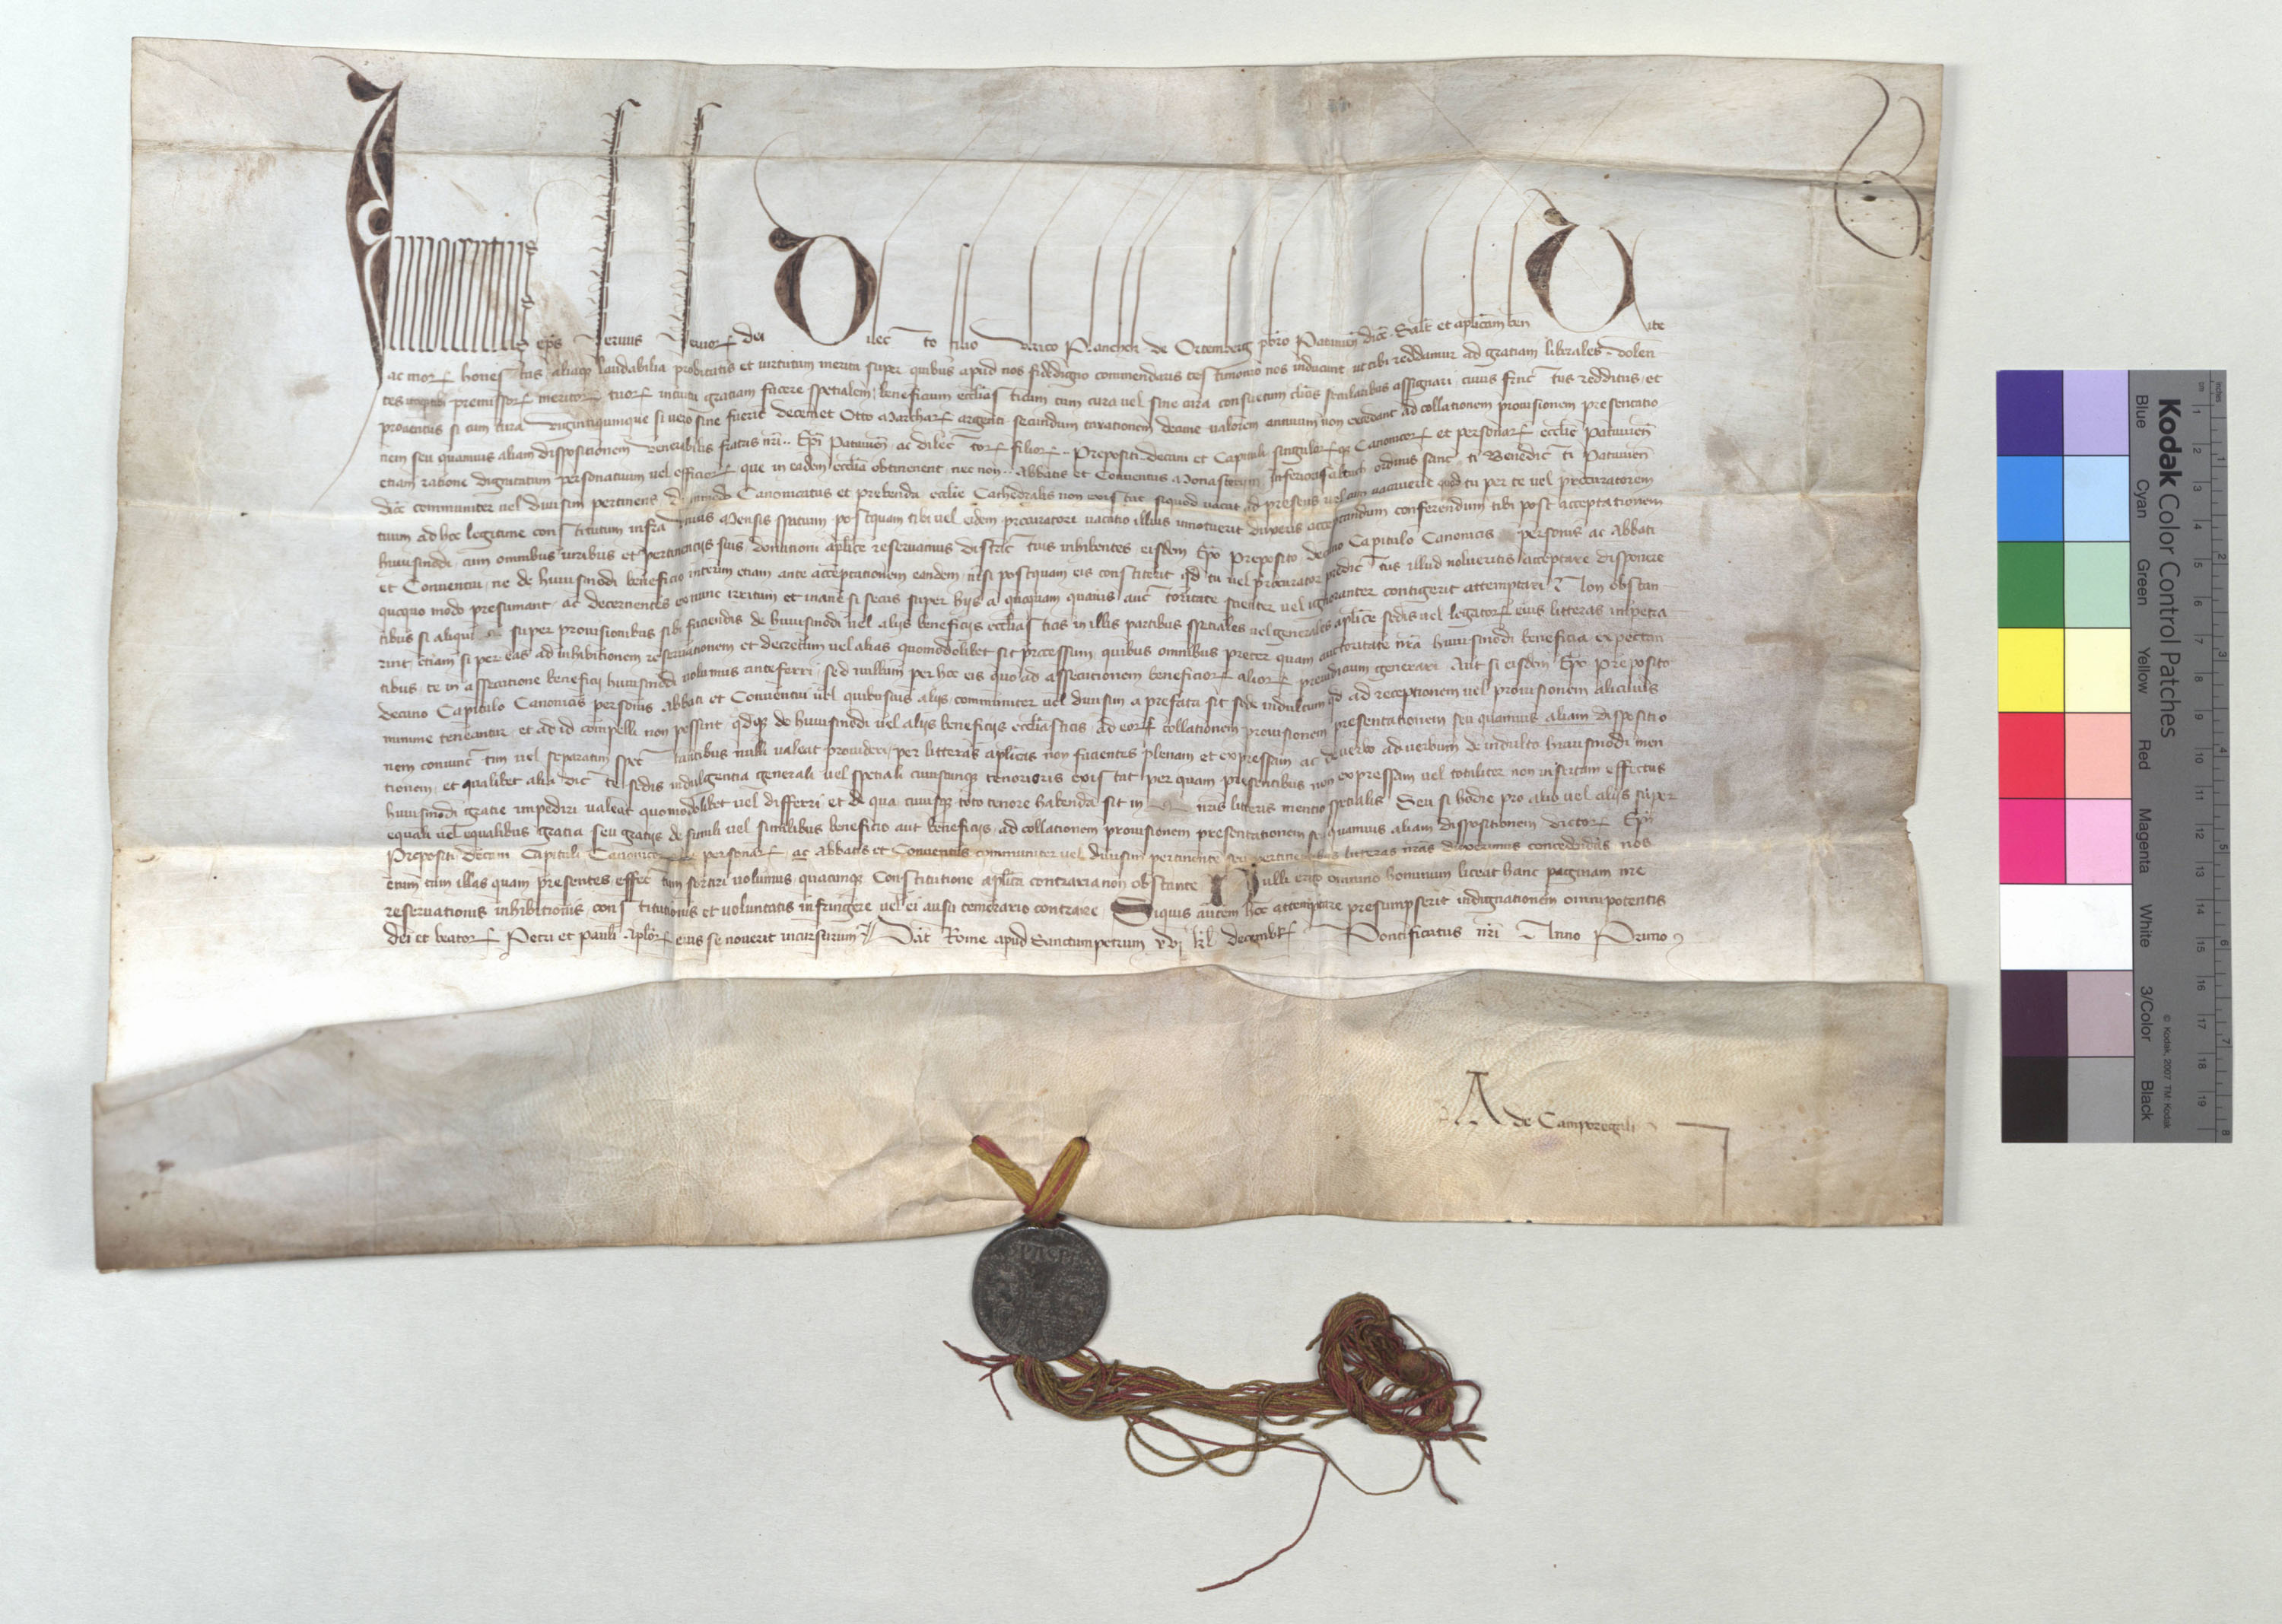 Innocentius ep̄s seruus seruoꝝ dei Dilecto filio Vlrico Planchen de Ortemberg pbr̄o Patauien̄ dioc̄. Salt̄ et aplicam ben̄ Vite
ac moꝝ honestas, aliaqꝫ laudabilia probitatis et uirtutum merita super quibus apud nos fidedigno commendaris testimonio nos inducunt, ut tibi reddamur ad gratiam liberales. Volen
tes premissoꝝ meritoꝝ tuoꝝ intuitu gratiam facere spetialem, beneficium eccl̄iasticum cum cura uel sine cura consuetum cl̄icis secularibus assignari, cuius fruct̄us redditus, et
prouentus si cum cura Vigintiquinque si uero sine fuerit decem et Otto Marcharꝝ argenti secundum taxationem decime ualorem annuum non excedant, ad collationem prouisionem presentatio
nem seu quamuis aliam dispositionem Venerabilis fratris nr̄i .. Ep̄i Patauien̄ ac dilectoꝝ filioꝝ .. Prepositi decani et Capituli singuloꝝqꝫ Canonicoꝝ et personaꝝ eccl̄ie Patauien̄
etiam ratione dignitatum personatuum uel officioꝝ que in eadem eccl̄ia obtinent nec non .. Abbatis et Conuentus Monasterii Inferiorisaltach ordinis sancti Benedicti Patauien̄
dioc̄ communiter uel diuisim pertinens, dummodo Canonicatus et prebenda eccl̄ie Cathedralis non existat, siquod uacat ad presens uel cum uacauerit quod tu per te uel procuratorem
tuum ad hoc legitime constitutum infra Vnius Mensis spatium, postquam tibi uel eidem procuratori uacatio illius innotuerit duxeris acceptandum conferendum tibi post acceptationem
huiusmodi, cum omnibus iuribus et pertinentijs suis donationi aplice reseruamus districtius inhibentes eisdem Ep̄o Preposito decano Capitulo Canonicis personis ac Abbati
et Conuentui, ne de huiusmodi beneficio interim etiam ante acceptationem eandem, nisi postquam eis constiterit qd̄ tu uel procurator predictus illud nolueritis acceptare disponere
quoquo modo presumant, ac decernentes exnunc irritum et inane si secus super hijs a quoquam quauis auctoritate scienter uel ignoranter contigerit attemptari. Non obstan
tibus si aliqui super prouisionibus sibi faciendis de huiusmodi uel alijs beneficijs eccl̄iasticis in illis partibus spetiales uel generales aplice sedis uel legatoꝝ eius litteras impetra
rint, etiam si per eas ad inhibitionem reseruationem et decretum uel alias quomodolibet sit processum, quibus omnibus preter quam auctoritate nr̄a huiusmodi beneficia expectan
tibus, te in assecutione beneficij huiusmodi uolumus anteferri, sed nullum per hoc eis quoad assecutionem beneficioꝝ alioꝝ preiudicium generari. Aut si eisdem Ep̄o Preposito
decano Capitulo Canonicis personis Abbati et Conuentui uel quibusuis alijs communiter uel diuisim a prefata sit sede indultum qd̄ ad receptionem uel prouisionem alicuius
minime teneantur, et ad id compelli non possint qdqꝫ de huiusmodi uel alijs beneficijs eccl̄iasticis ad eoꝝ collationem prouisionem presentationem seu quamuis aliam dispositio
nem coniunctim uel separatim spectantibus nulli ualeat prouideri, per litteras aplicas non facientes plenam et expressam ac de uerbo ad uerbum de indulto huiusmodi men
tionem, et qualibet alia dicte sedis indulgentia generali uel spetiali cuiuscunqꝫ tenoris existat per quam presentibus non expressam uel totaliter non insertam effectus
huiusmodi gratie impediri ualeat quomodolibet uel differri, et de qua cuiusqꝫ toto tenore habenda sit in nr̄is litteris mentio spetialis. Seu si hodie pro alio uel alijs super
equali uel equalibus gratia seu gratijs de simili uel similibus beneficio aut beneficijs, ad collationem prouisionem presentationem seu quamuis aliam dispositionem dictoꝝ Ep̄i
Prepositi decani Capituli Canonicoꝝ personaꝝ, ac Abbatis et Conuentus communiter uel diuisim pertinente seu pertinentibus litteras nr̄as duxerimus concedendas nos
enim tam illas quam presentes, effectum sortiri uolumus, quacunqꝫ Constitutione aplica contraria non obstante. Nulli ergo omnino hominum liceat hanc paginam nr̄e
reseruationis inhibitionis, constitutionis et uoluntatis infringere uel ei ausu temerario contraire. Siquis autem hoc attemptare presumpserit indignationem omnipotentis
dei et beatoꝝ Petri et Pauli Aploꝝ eius se nouerit incursurum. Dat̄ Rome apud Sanctumpetrum xvi kl̄ decembꝝ Pontificatus nr̄i Anno Primo
A de Camporegali